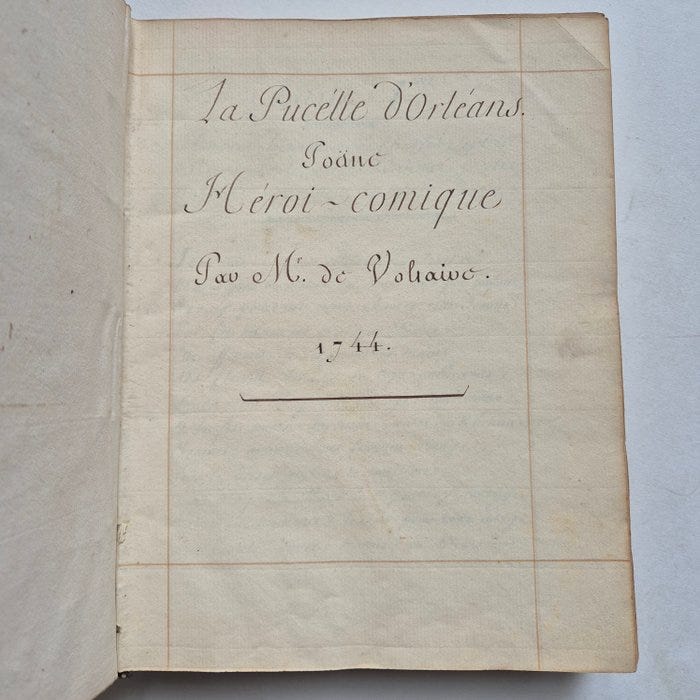 La Pucélle d'Orléans.
Poëme
Héroi-comique
Par Mr. de Voltaire.
1744.